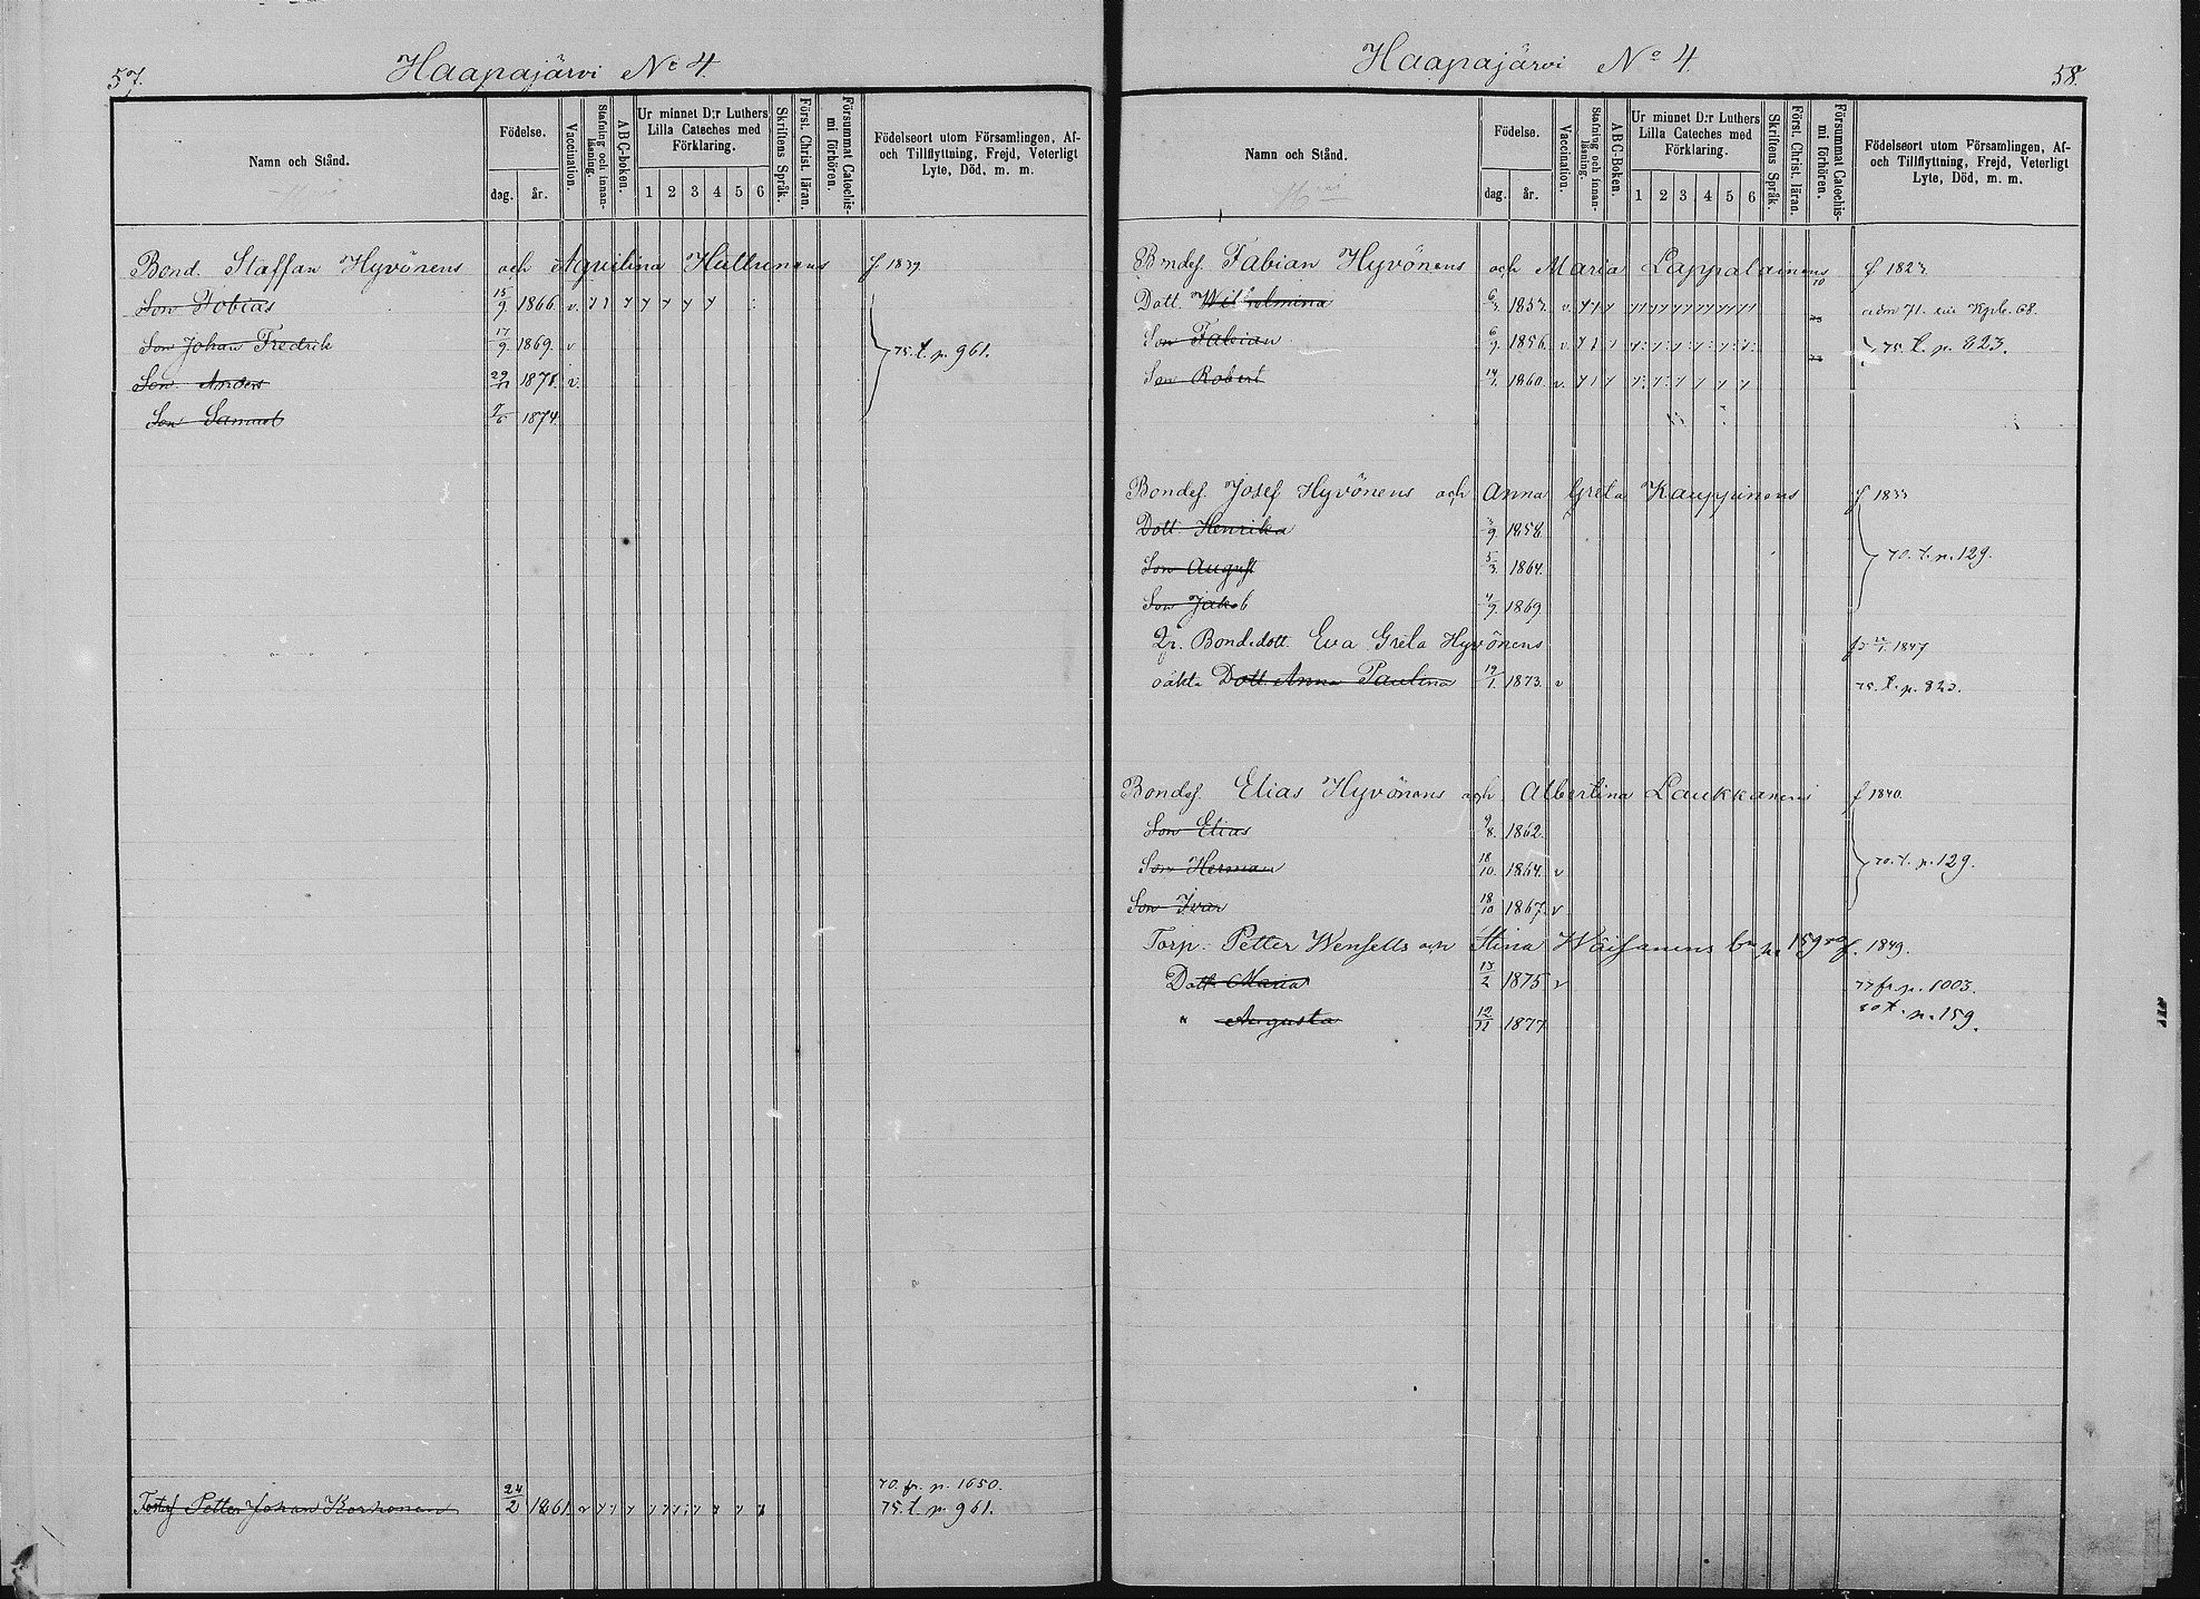 57.
Haapajärvi No 4.
Namn och Stånd.
Födelse.
dag. år.
Vaccination.
Stafning och innanläsning.
ABC-boken.
Ur minnet D:r Luthers Lilla Cateches med Förklaring.
1 2 3 4 5 6
Skriftens Språk.
Först. Christ. läran.
Försummat Catechismi förhören.
Födelseort utom Församlingen, Af- och Tillflyttning, Frejd, Veterligt Lyte, Död, m. m.
Bond. Staffan Hyvönens och Aqvilina Huttunens f 1839
Son Tobias 15/9. 1866. v.
Son Johan Fredrik 17/9. 1869. v
75. t. p. 961.
Son Anders 1871. v.
Son Samuel 1874.
70. fr. p. 1650.
Petter Johan Korhonen 24/2 1861. v 75. t. p. 961.
58.
Haapajärvi No 4.
Namn och Stånd.
Födelse.
dag. år.
Vaccination.
Stafning och innanläsning.
ABC-Boken.
Ur minnet D:r Luthers Lilla Cateches med Förklaring.
1 2 3 4 5 6
Skriftens Språk.
Först. Christ. läran.
Försummat Catechismi förhören.
Födelseort utom Församlingen, Af- och Tillflyttning, Frejd, Veterligt Lyte, Död, m. m.
Bondes. Fabian Hyvönens och Maria Lappalainens f 1823
Dott. Wilhelmina 1853. v. 68.
Son Fabian 1856. v. 75. t. p. 823.
Son Robert 14/1. 1860. v.
Bondes. Josef Hyvönens och Anna Greta Kauppinens f 1833
Dott. Henrika 1858.
Son August 5/3. 1864. 70. t. p. 129.
Son Jakob 1869.
Qv. Bondedott. Eva Greta Hyvönens 1847
oäkta Dott. Anna Paulina 19/1. 1873. v 75. t. p. 823.
Bondes. Elias Hyvönens och Albertina Laukkanens f 1840.
Son Elias 9/8. 1862.
Son Herman 18/10. 1864. v 70. t. p. 129.
Son Ivar 18/10 1867. v
Torp. Petter Wensells och Stina Wäisänens p. 159 f. 1849.
Dott. Maria 13/2 1875 v 77 fr. p. 1003.
" Augusta 1877 80 t. p. 159.